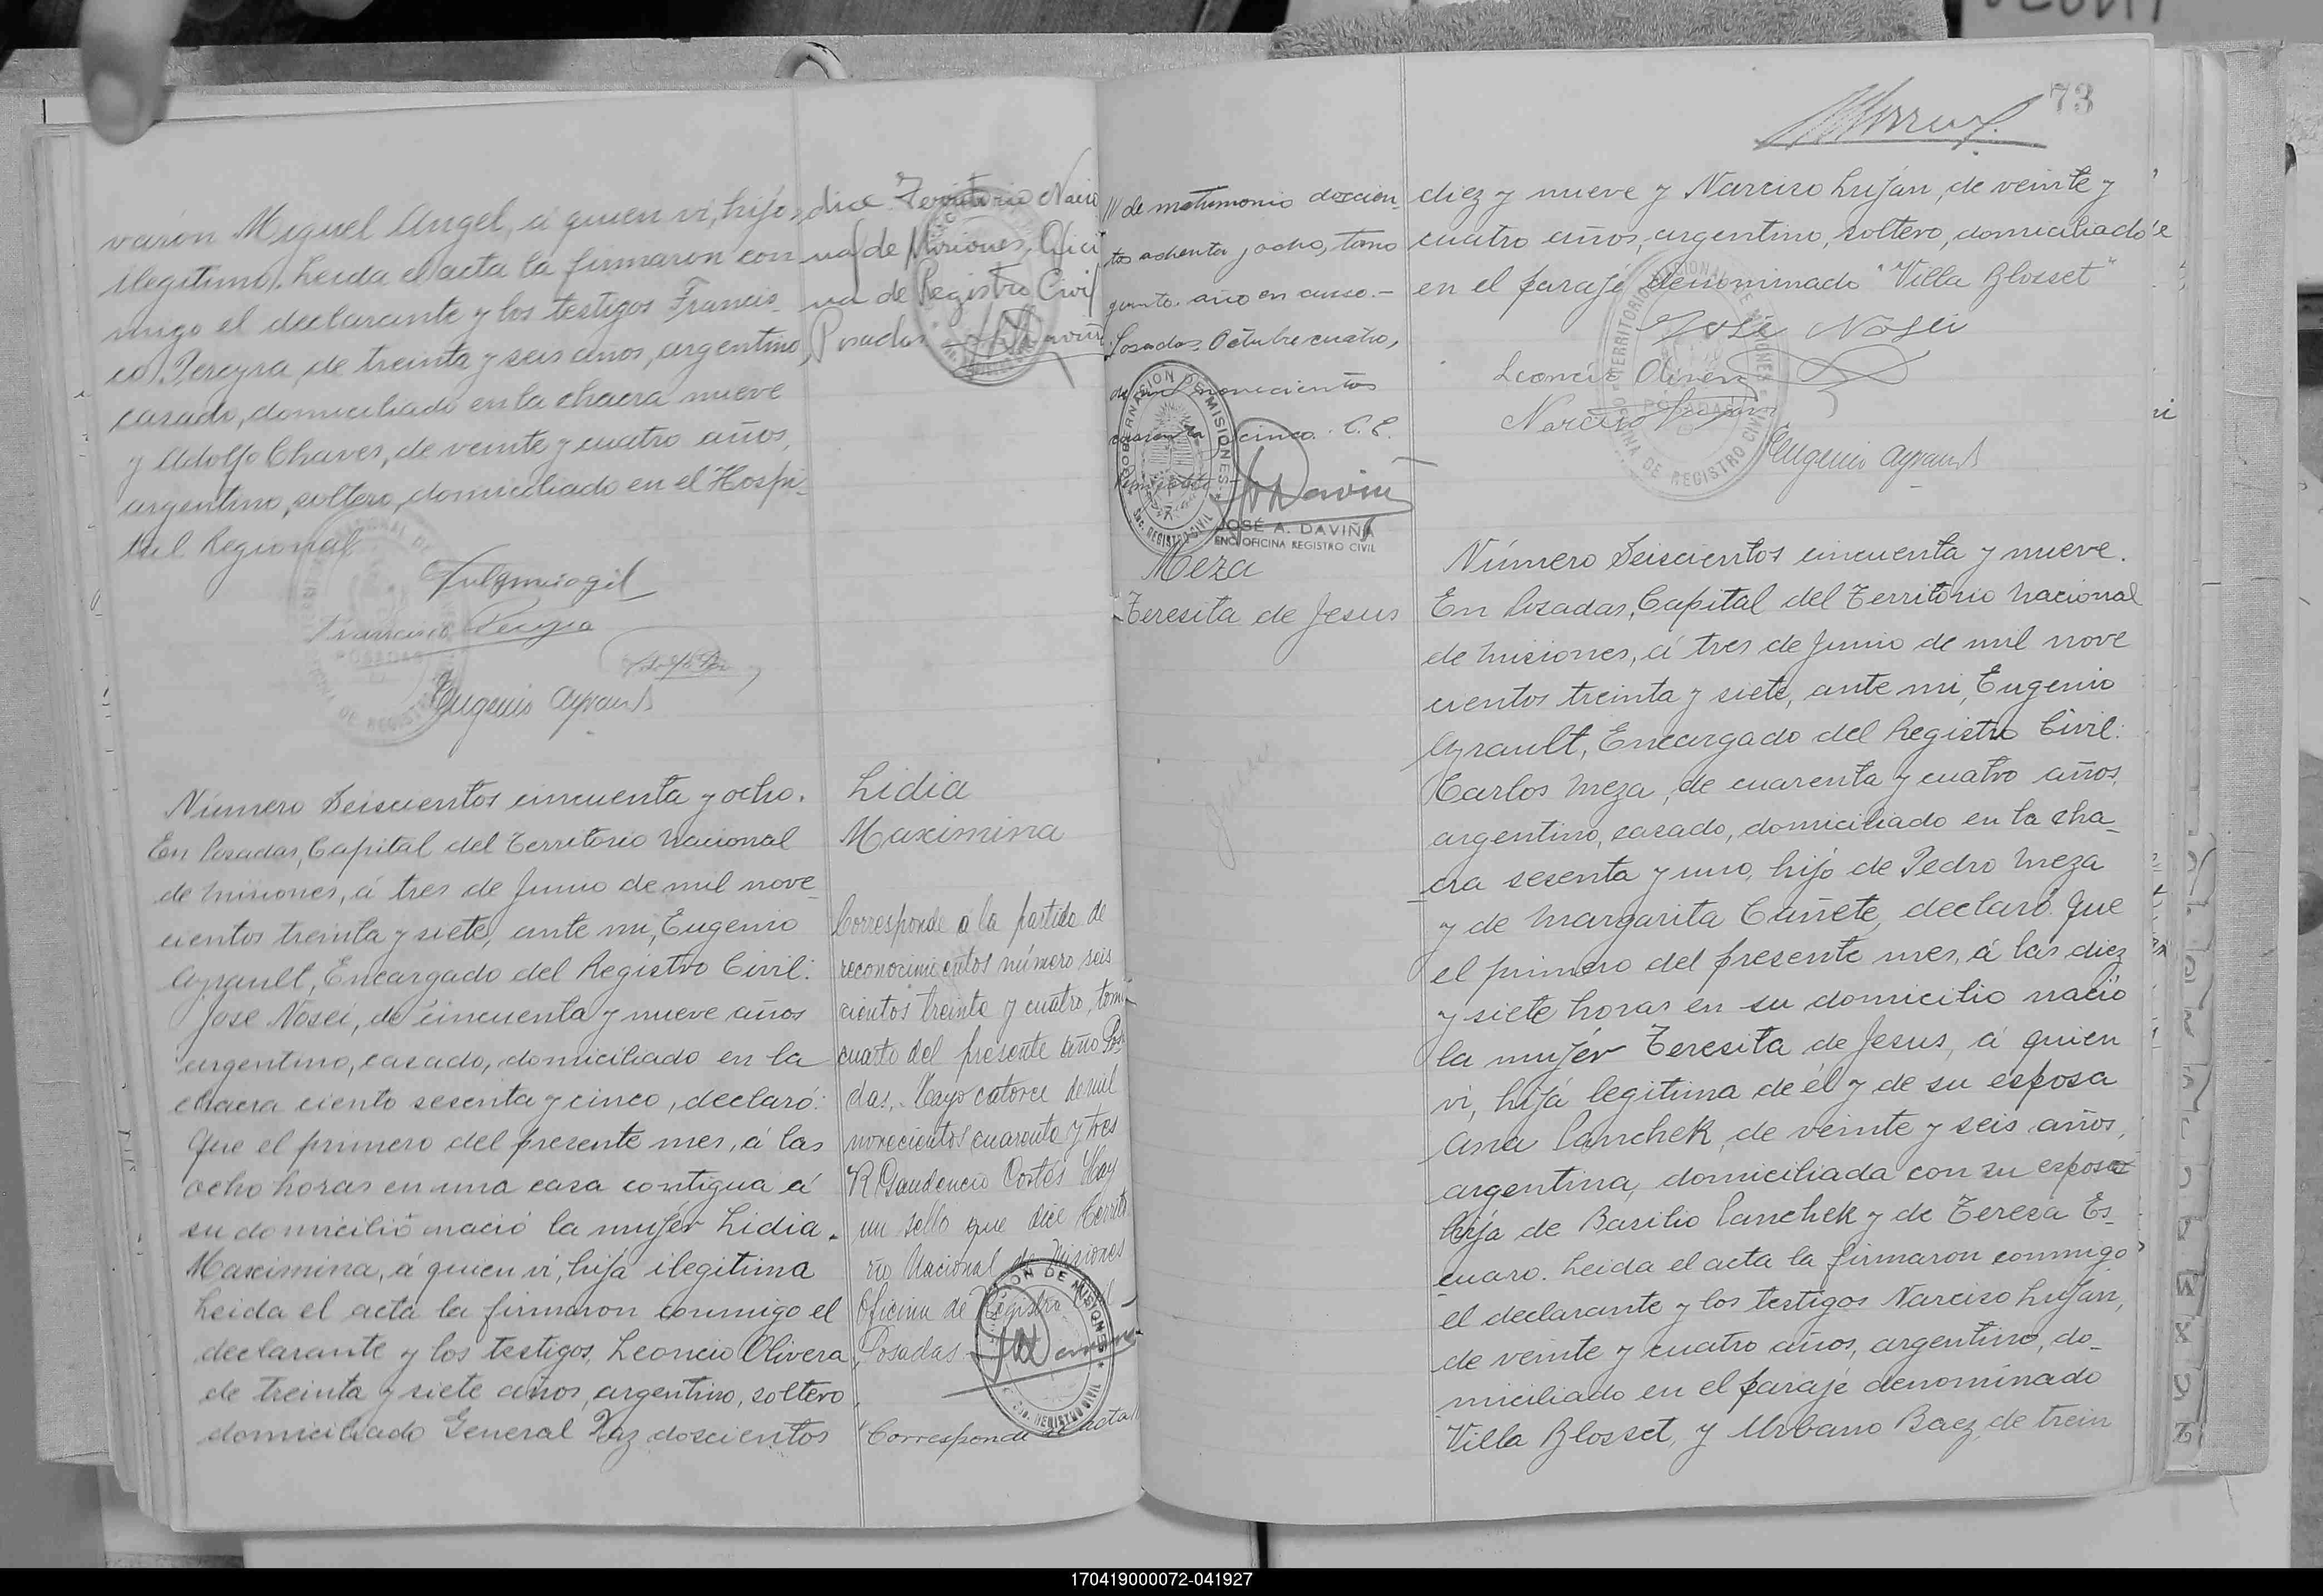 varón Miguel Angel, á quien ví, hijo
ilegitimo. Leida el acta la firmaron con
migo el declarante y los testigos Francis-
co Pereyra, de treinta y seis años, argentino,
casado, domiciliado en la chacra nueve
y Adolfo Chaves, de veinte y cuatro años,
argentino, soltero, domiciliado en el Hospi-
tal Regional
Francisco Pereyra
Eugenio Ayrault
dice Territorio Nacio
nal de Misiones, Ofici
na de Registro Civil
Posadas
Número Seiscientos cincuenta y ocho.
En Posadas, Capital del Territorio Nacional
de Misiones, á tres de Junio de mil nove-
cientos treinta y siete, ante mi, Eugenio
Ayrault, Encargado del Registro Civil:
José Nosei, de cincuenta y nueve años
argentino, casado, domiciliado en la
chacra ciento sesenta y cinco, declaró:
Que el primero del presente mes, á las
ocho horas en una casa contigua á
su domicilio nació la mujér Lidia
Maximina, á quien ví, hija ilegitima
Leida el acta la firmaron conmigo el
declarante y los testigos, Leoncio Olivera,
de treinta y siete años, argentino, soltero,
domiciliado General Paz doscientos
Lidia
Maximina
Corresponde a la partida de
reconocimientos número seis
cientos treinta y cuatro, tomo
cuarto del presente año Posa
das, Mayo catorce de mil
novecientos cuarenta y tres
R Gaudencio Cortés Hay
un sello que dice Territo
rio Nacional de Misiones
Oficina de Registro Civil
Posadas
"Corresponde al acta//
// de matrimonio doscien-
tos ochenta y ocho, tomo
quinto, año en curso.-
Posadas, Octubre cuatro,
de mil novecientos
cuarenta y cinco. C. E.
GOBERNACION DE MISIONES
Sec. REGISTRO CIVIL
JOSÉ A. DAVIÑA
ENC. OFICINA REGISTRO CIVIL
Meza
Teresita de Jesus
73
diez y nueve y Narciso Luján, de veinte y
cuatro años, argentino, soltero, domiciliado
en el paraje denominado "Villa Blosset"
José Nosei
Leoncio Olivera
Narciso Luján
Eugenio Ayrault
Número Seiscientos cincuenta y nueve.
En Posadas, Capital del Territorio Nacional
de Misiones, á tres de Junio de mil nove
cientos treinta y siete, ante mi, Eugenio
Ayrault, Encargado del Registro Civil:
Carlos Meza, de cuarenta y cuatro años,
argentino, casado, domiciliado en la cha-
cra sesenta y uno, hijo de Pedro Meza
y de Margarita Cañete, declaró: Que
el primero del presente mes, á las diez
y siete horas en su domicilio nació
la mujér Teresita de Jesus, á quien
ví, hija legitima de él y de su esposa
Ana Panchek, de veinte y seis años,
argentina, domiciliada con su esposo
hija de Basilio Panchek y de Teresa Es-
cuaro. Leida el acta la firmaron conmigo
el declarante y los testigos Narciso Luján,
de veinte y cuatro años, argentino, do-
miciliado en el paraje denominado
Villa Blosset, y Urbano Baez, de trein
170419000072-041927